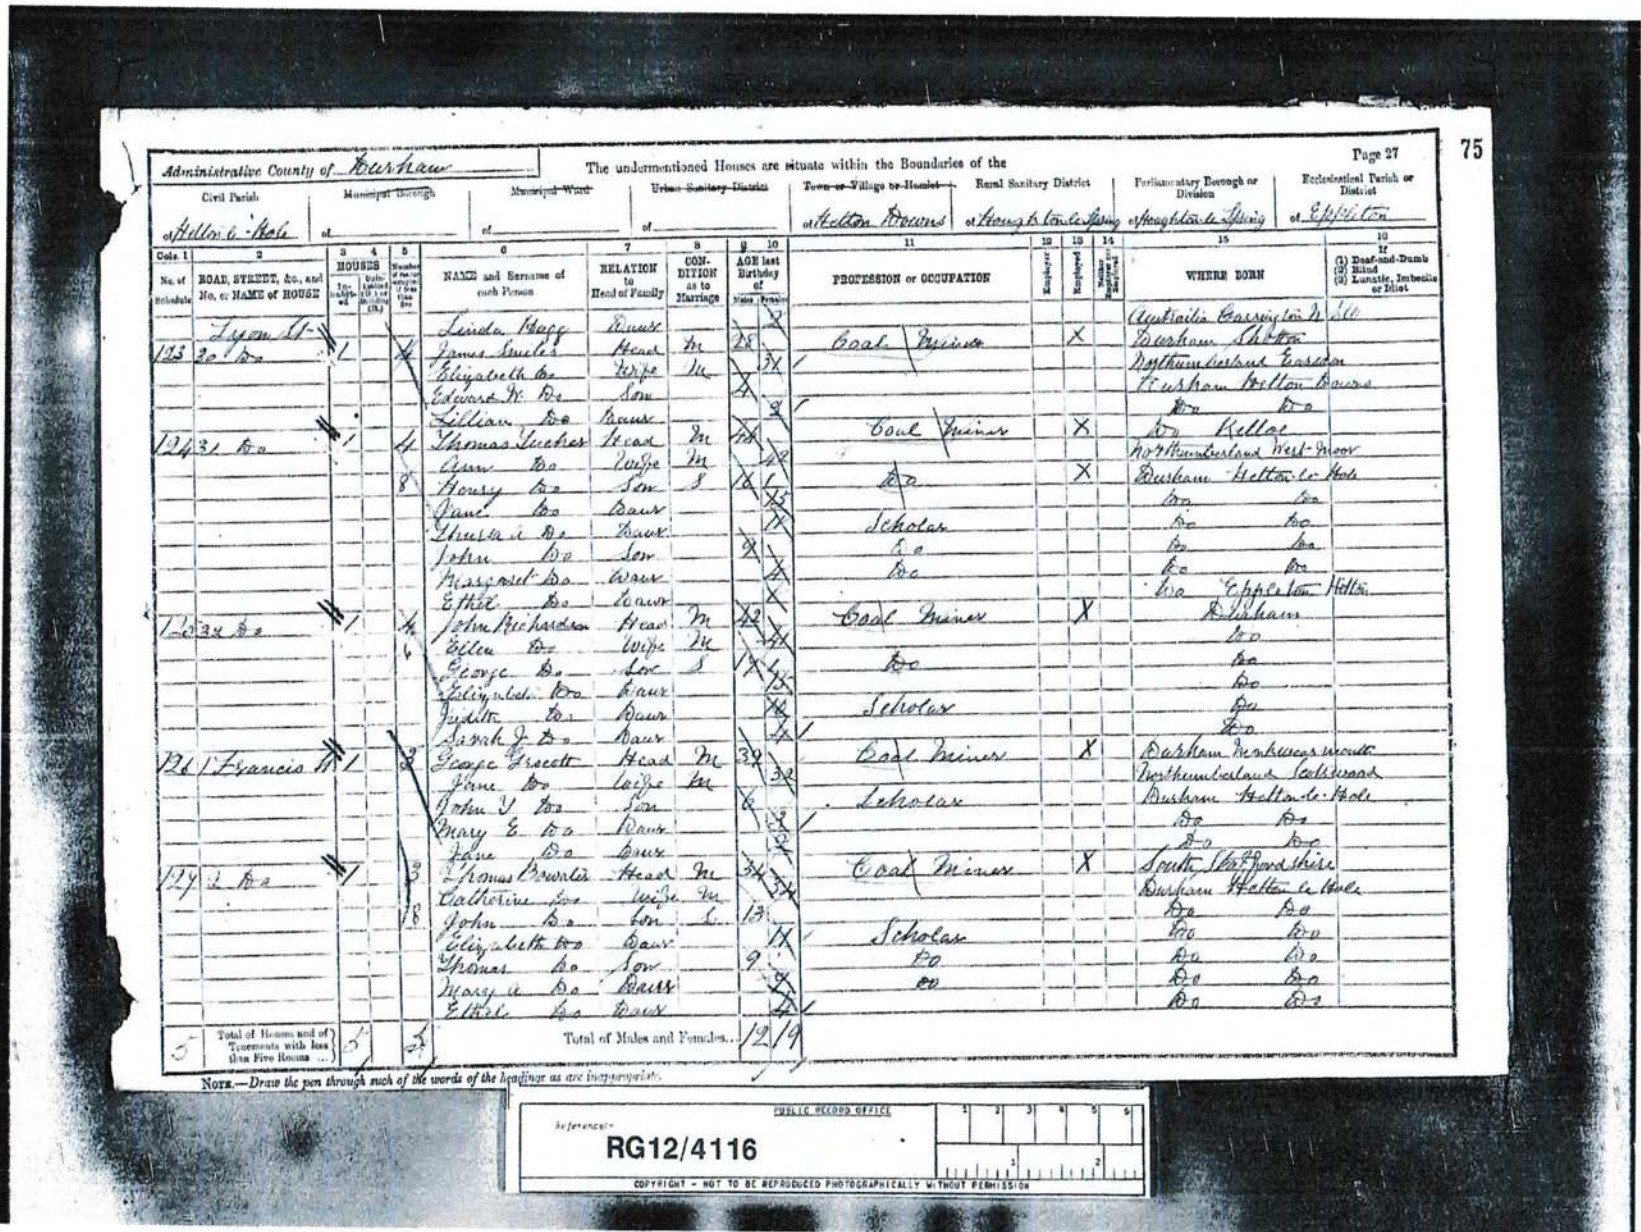 75
Administrative County of Durham The undermentioned Houses are situate within the Boundaries of the Page 27
Civil Parish Municipal Borough Municipal Ward Urban Sanitary District Town or Village or Hamlet Rural Sanitary District Parliamentary Borough or Division Ecclesiastical Parish or District
of Hetton le Hole of of of of Hetton Downs of Houghton le Spring of Houghton le Spring of Eppleton
Cols. 1 2 3 4 5 6 7 8 9 10 11 12 13 14 15 16
No. of Schedule ROAD, STREET, &c., and No. or NAME of HOUSE HOUSES NAME and Surname of each Person RELATION to Head of Family CONDITION as to Marriage AGE last Birthday of Males Females PROFESSION or OCCUPATION Employer Employed WHERE BORN If (1) Deaf-and-Dumb (2) Blind (3) Lunatic, Imbecile or Idiot
Lyon St Linda Daur 2
123 30 Do 1 4 James Smiles Head M 28 Coal Miner X Durham Shotton
Elizabeth Do Wife M 31 Northumberland Earsdon
Edward W. Do Son 4 Durham Hetton Downs
Lillian Do Daur 2 Do Do
124 31 Do 1 4 Thomas Head M 44 Coal Miner X Do Kelloe
Ann Do Wife M 42 Northumberland West Moor
8 Henry Do Son S 16 Do X Durham Hetton le Hole
Jane Do Daur 15 Do Do
Do Daur 11 Scholar Do Do
John Do Son 9 Do Do Do
Margaret Do Daur 4 Do Do Do
Ethel Do Daur Do Eppleton Hetton
125 32 Do 1 4 John Richardson Head M 42 Coal Miner X Durham
6 Ellen Do Wife M 41 Do
George Do Son S 17 Do Do
Elizabeth Do Daur 15 Do
Judith Do Daur 10 Scholar Do
Sarah J Do Daur 4 Do
126 1 Francis St 1 3 George Grocott Head M 39 Coal Miner X Durham Monkwearmouth
Jane Do Wife M 32 Northumberland Scotswood
John Do Son 6 Scholar Durham Hetton le Hole
Mary E Do Daur 3 Do Do
Jane Do Daur Do Do
127 2 Do 1 3 Thomas Bowater Head M 34 Coal Miner X South Staffordshire
Catherine Do Wife M 34 Durham Hetton le Hole
8 John Do Son S 13 Do Do
Elizabeth Do Daur 11 Scholar Do Do
Thomas Do Son 9 Do Do Do
Mary A Do Daur 7 Do Do Do
Ethel Do Daur 4 Do Do
5 Total of Houses and of Tenements with less than Five Rooms ... 5 5 Total of Males and Females... 12 19
NOTE.—Draw the pen through such of the words of the headings as are inappropriate.
PUBLIC RECORD OFFICE
Reference:-
RG12/4116
1 2 3 4 5 6
1 2
COPYRIGHT - NOT TO BE REPRODUCED PHOTOGRAPHICALLY WITHOUT PERMISSION